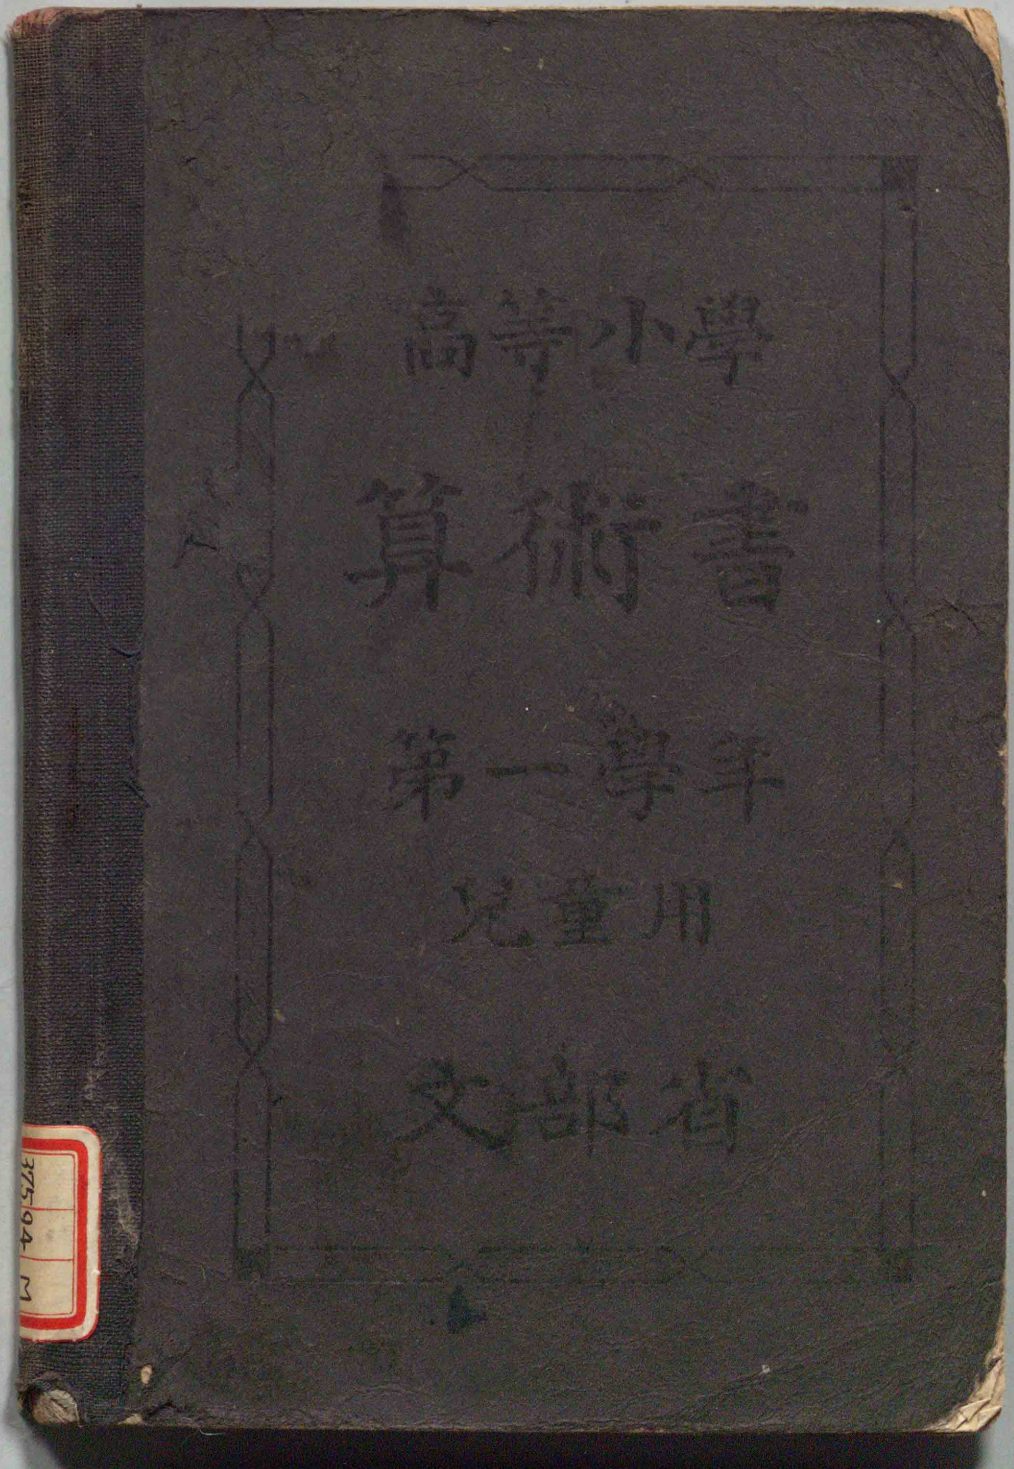 高等小學
算術書
第一學年
兒童用
文部省
375.94 M